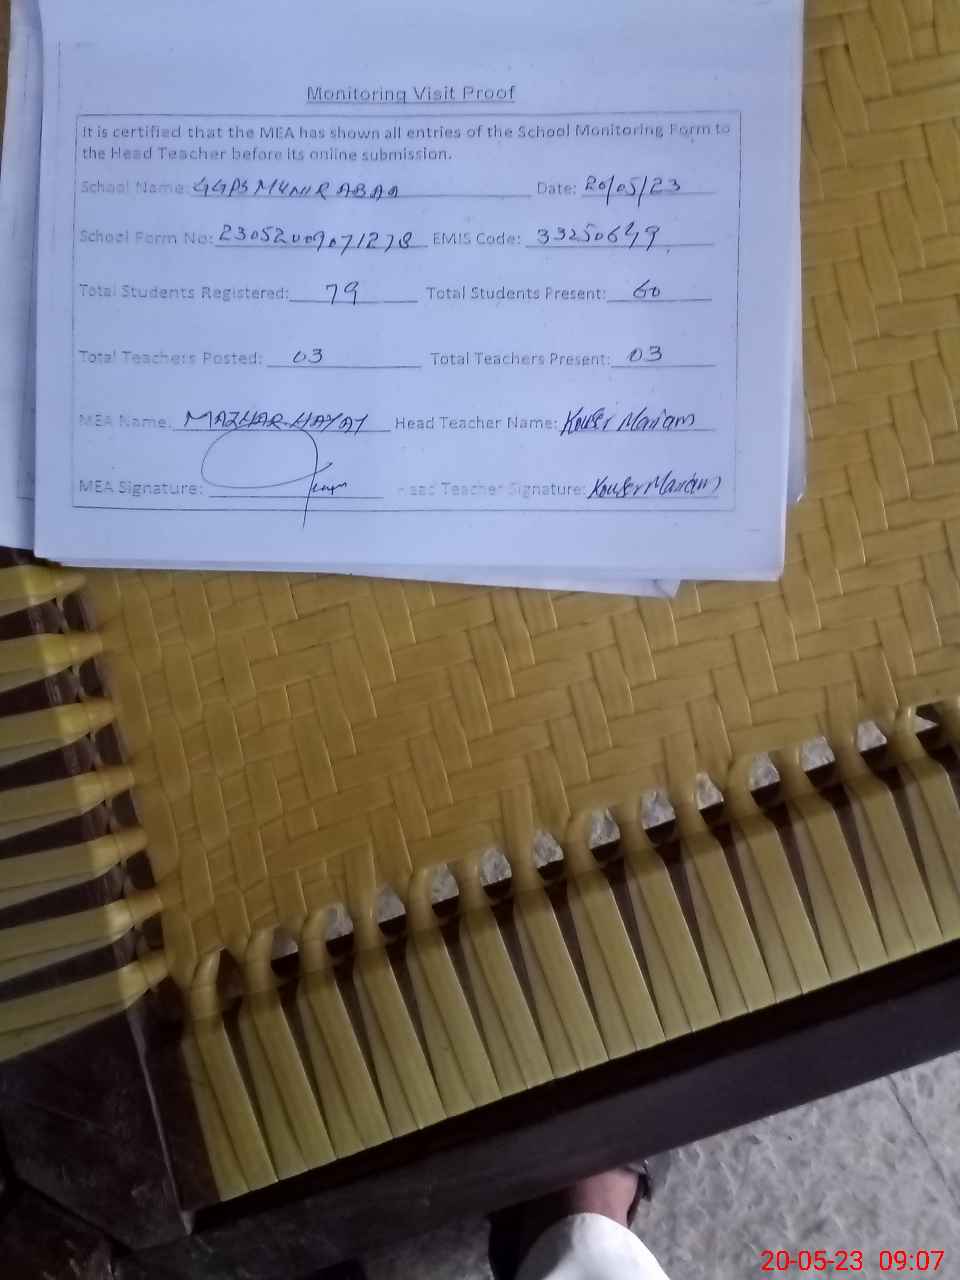 Monitoring Visit Proof
It is certified that the MEA has shown all entries of the School Monitoring Form to
the Head Teacher before its online submission.
School Name: GGPS MUNIR ABAD Date: 20/05/23
School Form No: 23052009071278 EMIS Code: 33250649
Total Students Registered: 79 Total Students Present: 60
Total Teachers Posted: 03 Total Teachers Present: 03
MEA Name: MAZHAR HAYAT Head Teacher Name: Kouser Mariam
MEA Signature: Head Teacher Signature: Kouser Mariam
20-05-23 09:07